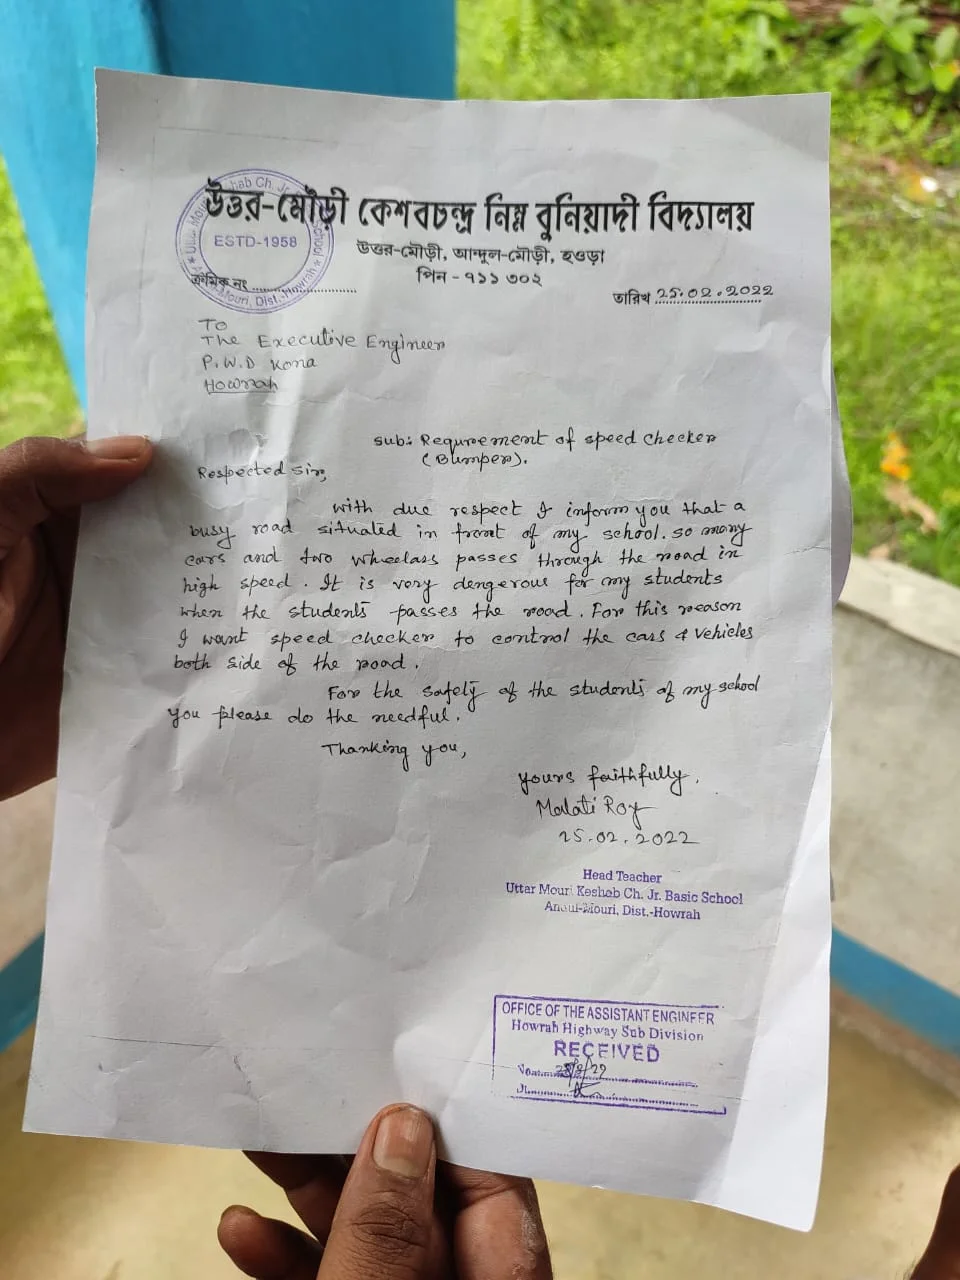 উত্তর-মৌড়ী কেশবচন্দ্র নিম্ন বুনিয়াদী বিদ্যালয়
ESTD-1958
উত্তর-মৌড়ী, আন্দুল-মৌড়ী, হাওড়া
পিন - ৭১১ ৩০২
ক্রমিক নং
তারিখ 25.02.2022
To
The Executive Engineer
P.W.D Kona
Howrah
Sub: Requrement of speed checker
(Bumper).
Respected Sir,
with due respect I inform you that a
busy road situated in front of my school. so many
cars and two wheelass passes through the road in
high speed. It is very dengerous for my students
when the students passes the road. For this reason
I want speed checker to control the cars & vehicles
both side of the road.
For the safety of the students of my school
you please do the needful.
Thanking you,
yours faithfully,
Malati Roy
25.02.2022
Head Teacher
Uttar Mouri Keshab Ch. Jr. Basic School
Andul-Mouri, Dist.-Howrah
OFFICE OF THE ASSISTANT ENGINEER
Howrah Highway Sub Division
RECEIVED